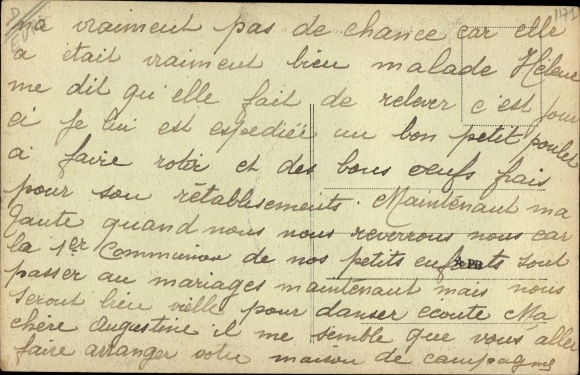 na vraiment pas de chance car elle
a était vraiment bien malade Hélène
me dit qu'elle fait de relever c'est pour
ci Je lui est espediéé un bon petit poulet
a faire rotir et des bons oeufs frais
pour son rétablisements. Maintenant ma
Tante quand nous nous reverrons nous car
la 1er Communion de nos petits enfants sont
passer au mariages maintenant mais nous
seront bien vielle pour danser écoute Ma
chère Augustine il me semble que vous aller
faire arranger votre maison de campagne
1175